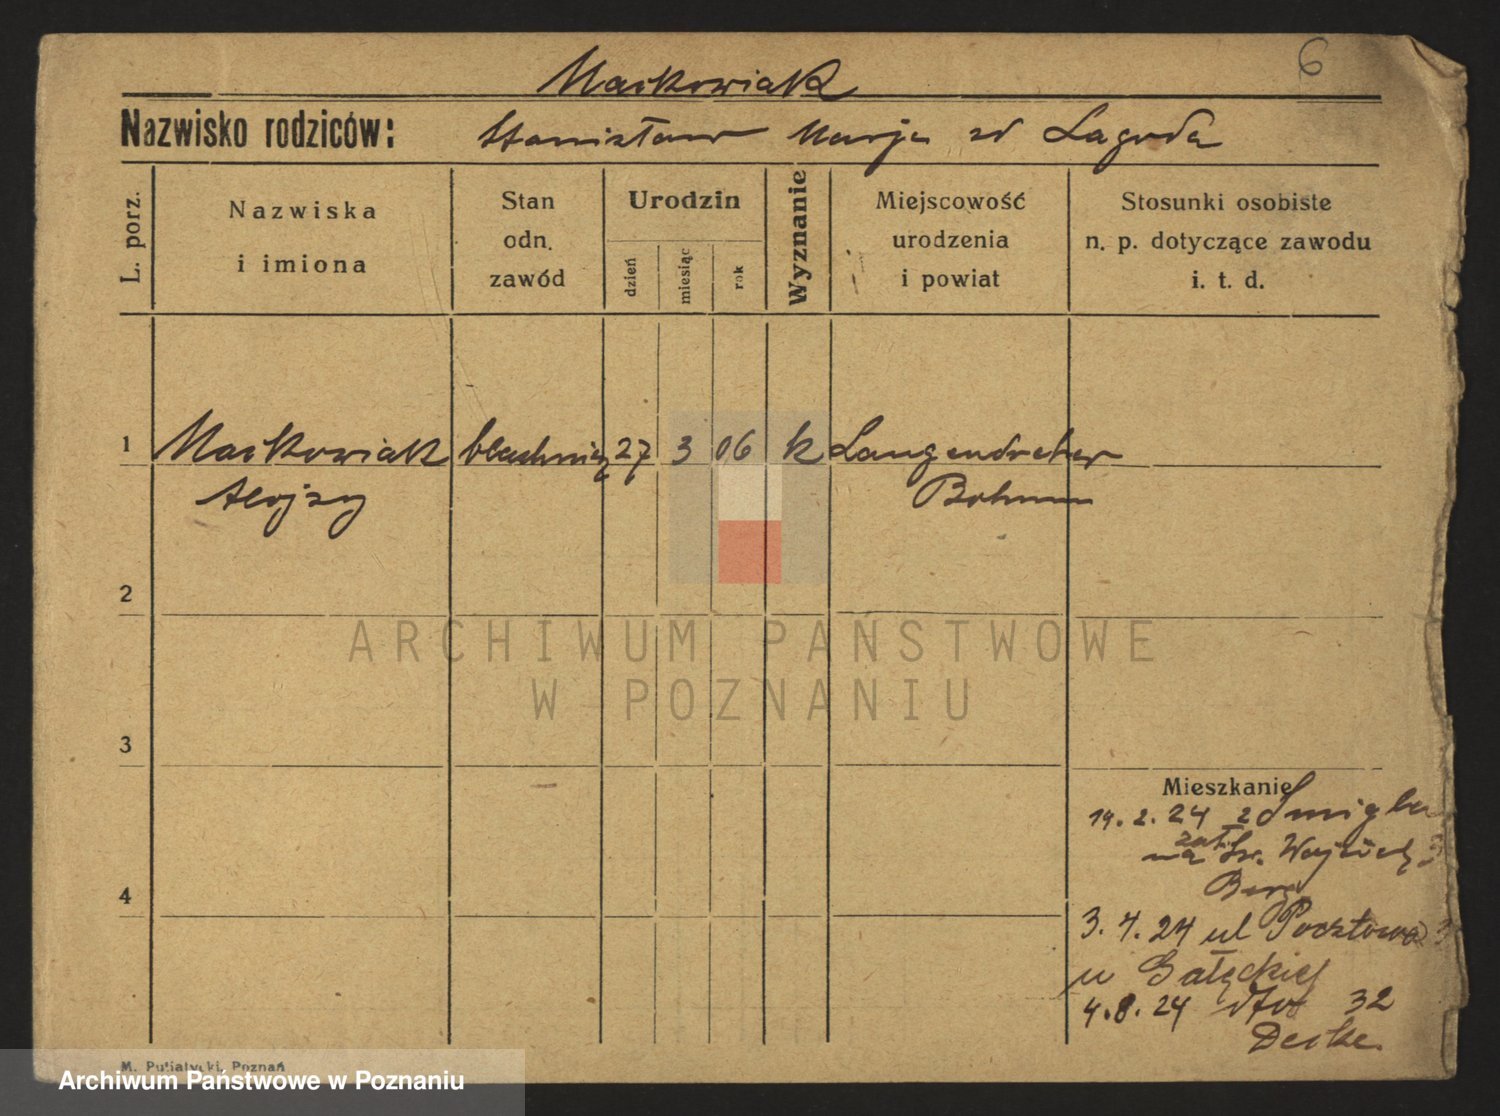 6
Maćkowiak
Nazwisko rodziców: Stanisław Marja zd Łagoda
L. porz.
Nazwiska
i imiona
Stan
odn.
zawód
Urodzin
dzień
miesiąc
rok
Wyznanie
Miejscowość
urodzenia
i powiat
Stosunki osobiste
n. p. dotyczące zawodu
i. t. d.
1 Maćkowiak blacharz 27 3 06 k Langendreher
Alojzy Bohum
2
ARCHIWUM PAŃSTWOWE
W POZNANIU
3
Mieszkanie
19. 2. 24 z Śmigla
na Św. Wojciech
Berg
4
3. 4. 24 ul Pocztowa
u Gałęckiej
4. 8. 24 dto 32
Deske.
M. Putiatycki, Poznań
Archiwum Państwowe w Poznaniu